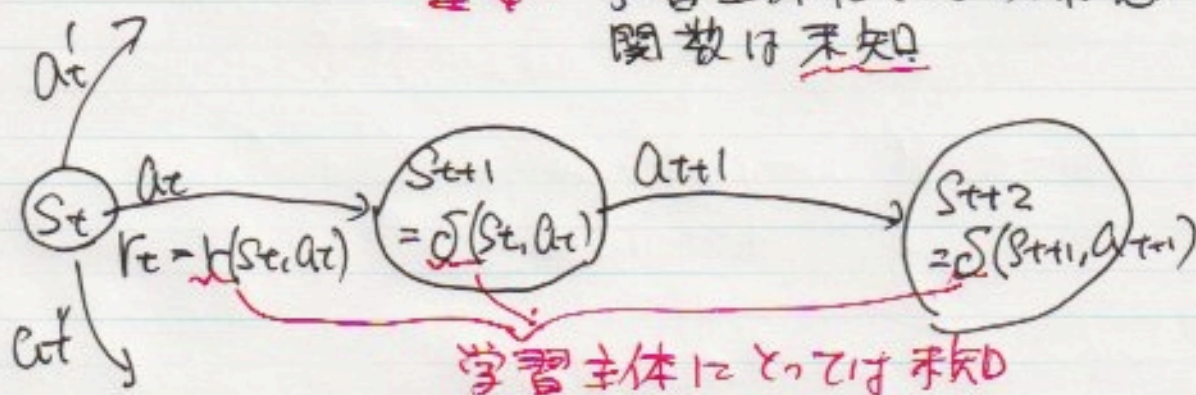 関数は未知
a't
at
St
rt = r(St, at)
St+1
= δ(St, at)
at+1
St+2
= δ(St+1, at+1)
a''t
学習主体にとっては未知